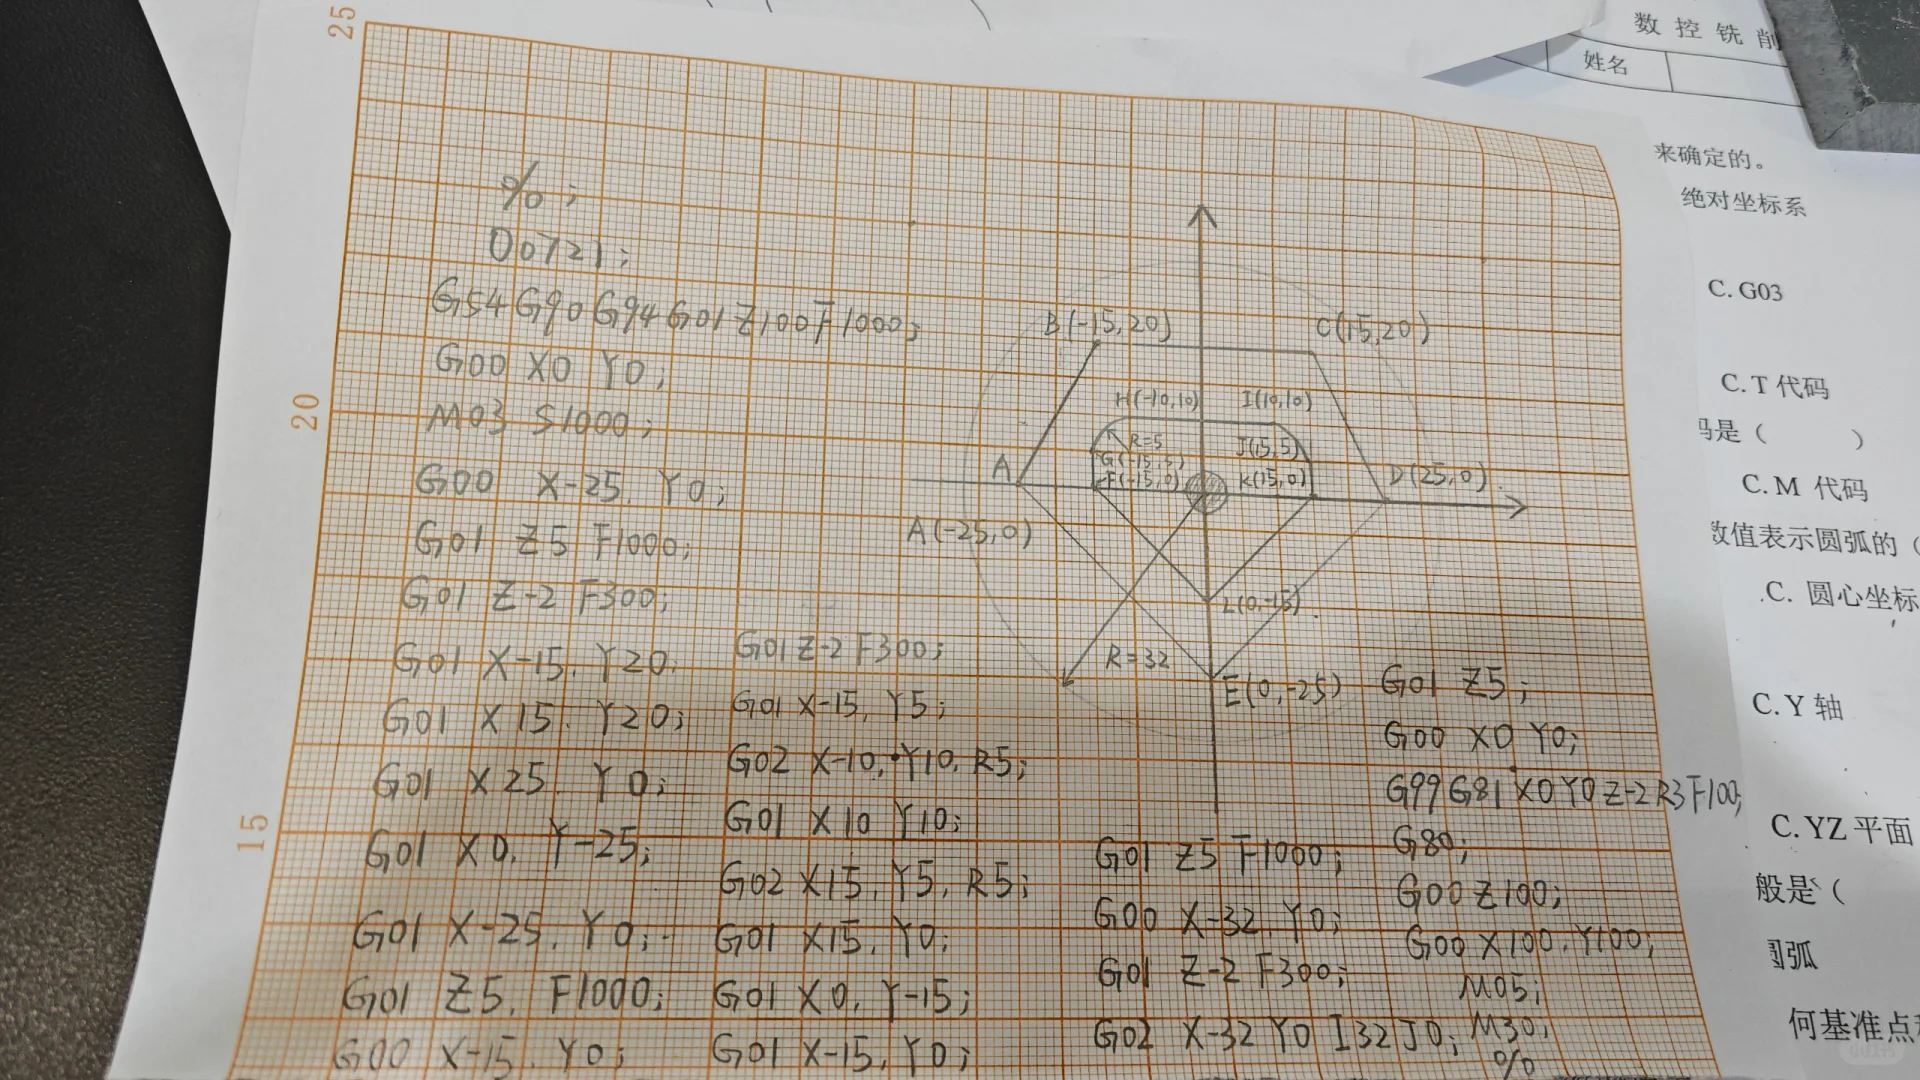 25
20
15
%;
O0721;
G54G90G94G01Z100F1000;
G00 X0 Y0;
M03 S1000;
G00 X-25. Y0;
G01 Z5 F1000;
G01 Z-2 F300;
G01 X-15. Y20.
G01 X15. Y20;
G01 X25. Y0;
G01 X0. Y-25;
G01 X-25. Y0;
G01 Z5. F1000;
G00 X-15. Y0;
G01 Z-2 F300;
G01 X-15, Y5;
G02 X-10, Y10, R5;
G01 X10 Y10;
G02 X15, Y5, R5;
G01 X15, Y0;
G01 X0, Y-15;
G01 X-15, Y0;
G01 Z5 F1000;
G00 X-32. Y0;
G01 Z-2 F300;
G02 X-32 Y0 I32 J0;
G01 Z5;
G00 X0 Y0;
G99G81 X0Y0Z-2R3F100;
G80;
G00Z100;
G00 X100. Y100;
M05;
M30;
%
B(-15,20)
C(15,20)
H(-10,10)
I(10,10)
R=5
J(15,5)
G(-15,5)
A
F(-15,0)
K(15,0)
D(25,0)
A(-25,0)
L(0,-15)
R=32
E(0,-25)
数控铣削
姓名
来确定的。
绝对坐标系
C. G03
C. T 代码
码是（ ）
C. M 代码
数值表示圆弧的（
C. 圆心坐标
C. Y 轴
C. YZ 平面
般是（
圆弧
何基准点
小红书